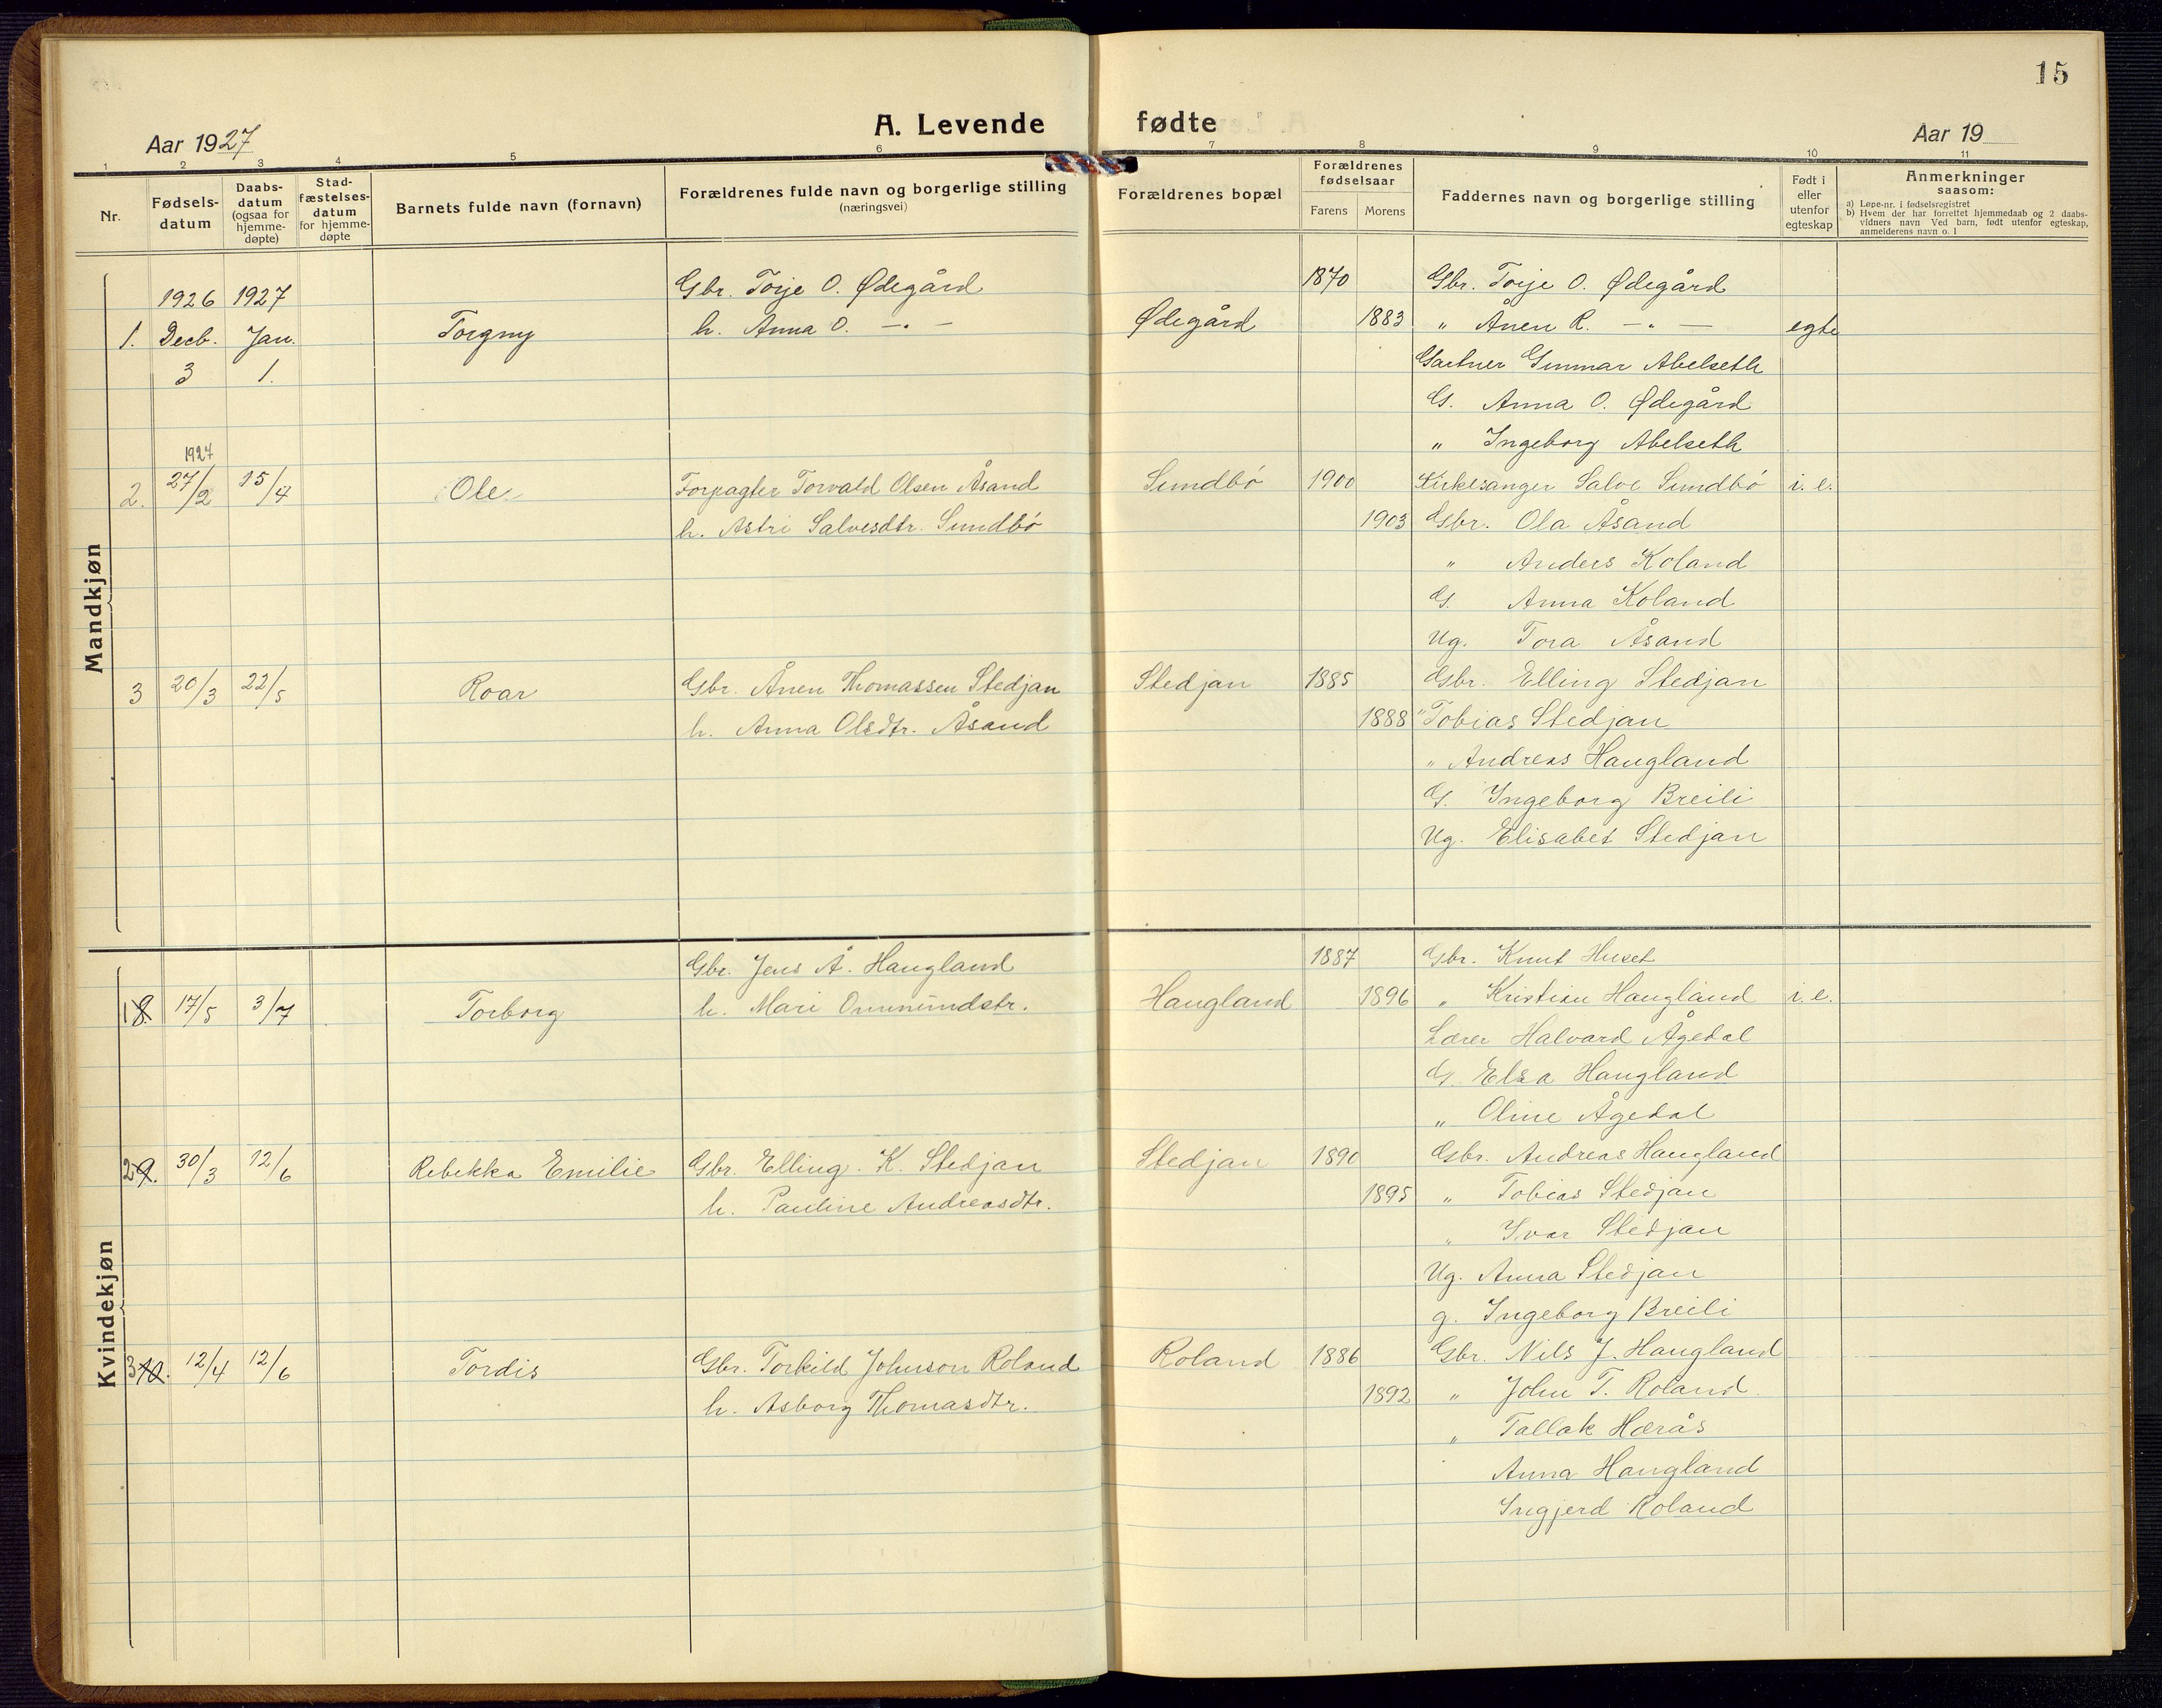 15
A. Levende fødte
Aar 1927
Aar 19
1 2 3 4 5 6 7 8 9 10 11
Nr.
Fødsels-
datum
Daabs-
datum
(ogsaa for
hjemme-
døpte)
Stad-
fæstelses-
datum
for hjemme-
døpte
Barnets fulde navn (fornavn)
Forældrenes fulde navn og borgerlige stilling
(næringsvei)
Forældrenes bopæl
Forældrenes
fødselsaar
Farens Morens
Faddernes navn og borgerlige stilling
Født i
eller
utenfor
egteskap
Anmerkninger
saasom:
a) Løpe-nr. i fødselsregistret
b) Hvem der har forrettet hjemmedaab og 2 daabs-
vidners navn Ved barn, født utenfor egteskap,
anmelderens navn o. l
Mandkjøn
Gbr. Torje O. Ødegård 1870 Gbr. Torje O. Ødegård
1926 1927
1. Decb. Jan. Torgny h. Anna O. —"— Ødegård 1883 " Ånen R. —"— egte
3 1. Gartner Gunnar Abelseth
G. Anna O. Ødegård
" Ingeborg Abelseth
1927
2. 27/2 15/4 Ole Forpagter Torvald Olsen Åsand Sundbö 1900 Kirkesanger Salve Sundbö i. e.
h. Astri Salvesdtr. Sundbö 1903 Gbr. Ola Åsand
" Anders Koland
G. Anna Koland
Ug. Tora Åsand
3 20/3 22/5 Roar Gbr. Ånen Thomassen Stedjan Stedjan 1885 Gbr. Elling Stedjan
h. Anna Olsdtr. Åsand 1888 " Tobias Stedjan
" Andreas Haugland
G. Ingeborg Breili
Ug. Elisabet Stedjan
Kvindekjøn
Gbr. Jens Å. Haugland 1887 Gbr. Knut Huset
1 8. 17/5 3/7 Torborg h. Mari Ommundstr. Haugland 1896 " Kristian Haugland i. e.
Lærer Halvard Ågedal
G. Elsa Haugland
" Oline Ågedal
2 9. 30/3 12/6 Rebekka Emilie Gbr. Elling K. Stedjan Stedjan 1890 Gbr. Andreas Haugland
h. Pauline Andreasdtr. 1895 " Tobias Stedjan
" Ivar Stedjan
Ug. Anna Stedjan
g. Ingeborg Breili
3 10. 12/4 12/6 Tordis Gbr. Torkild Johnson Roland Roland 1886 Gbr. Nils J. Haugland
h. Asborg Thomasdtr. 1892 " John T. Roland
" Tallak Hærås
Anna Haugland
Ingjerd Roland